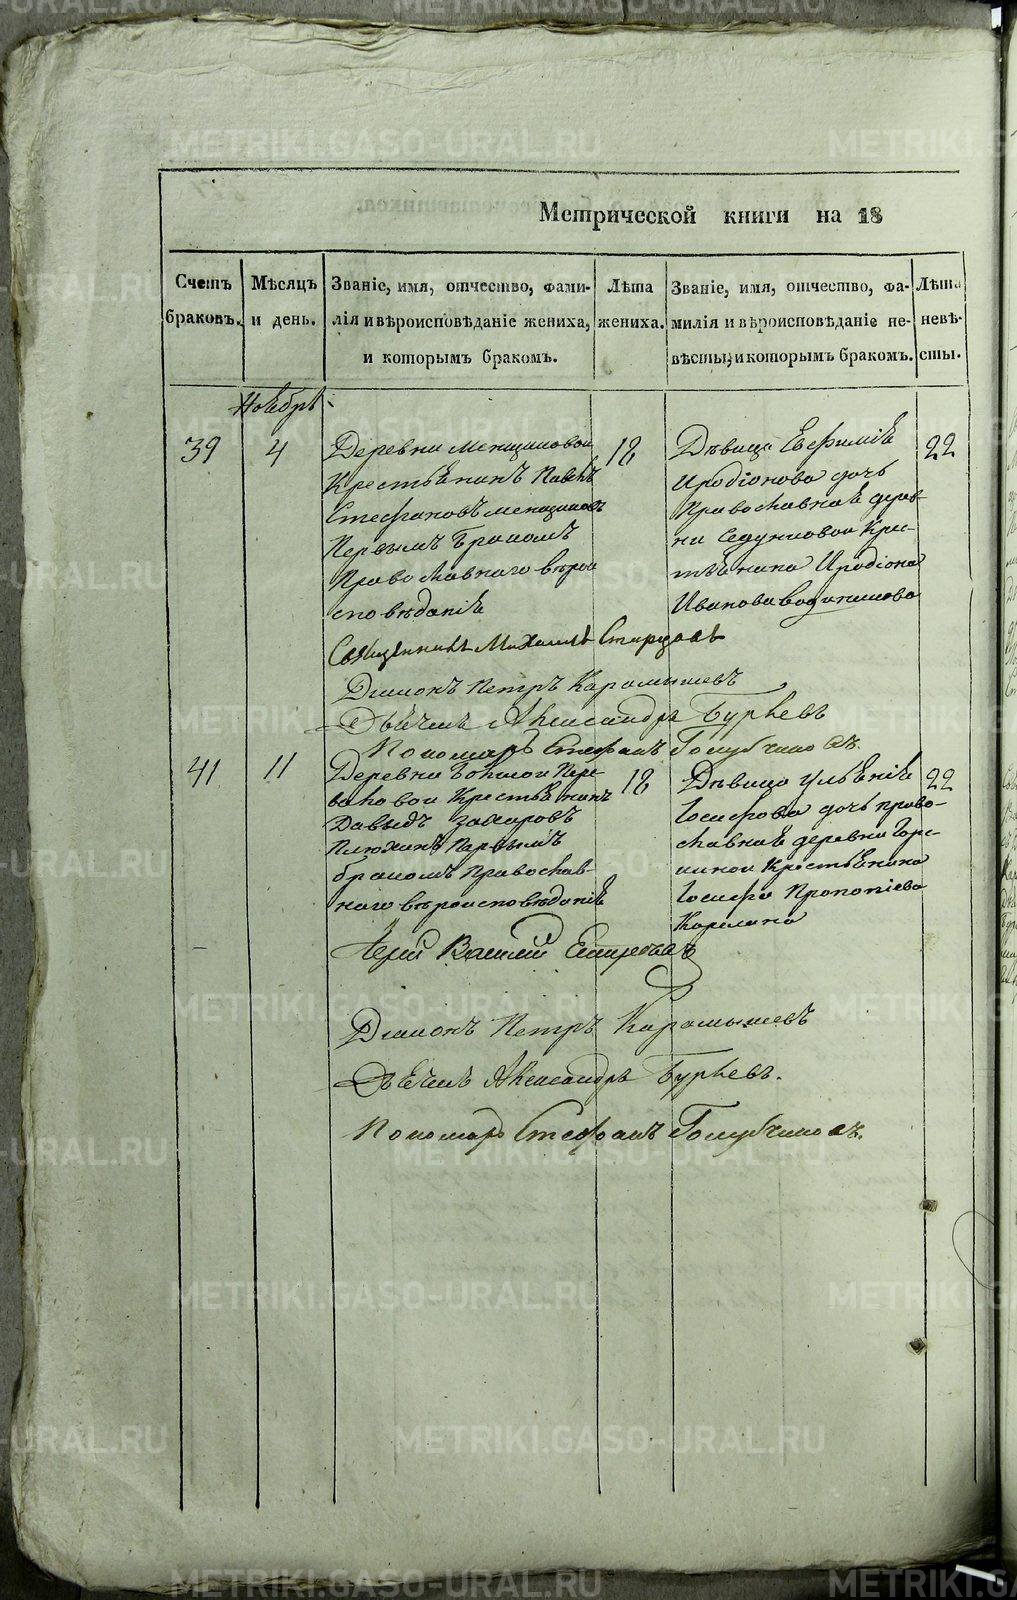 Метрической книги на 18
Счетъ браковъ.
Мѣсяцъ и день.
Званіе, имя, отчество, фами-
лія и вѣроисповѣданіе жениха,
и которымъ бракомъ.
Лѣта
жениха.
Званіе, имя, отчество, фа-
милія и вѣроисповѣданіе не-
вѣсты, и которымъ бракомъ.
Лѣта
невѣ-
сты.
Ноябрь
39
4
Деревни Менщиковой
Крестьянинъ Павелъ
Стефановъ Менщиковъ
Первымъ Бракомъ
Православнаго вѣрои
сповѣданія
18
Дѣвица Евфимія
Иродіонова дочь
Православная дерев-
ни Седунковой Крес-
тьянина Иродіона
Иванова
22
Священникъ Михаилъ
Діаконъ Петръ Карамышевъ
Дьячекъ Александръ Бурлевъ
Пономарь Стефанъ Голубчиковъ.
41
11
Деревни
Крестьянинъ
Давыдъ Захаровъ
Плюхинъ Первымъ
бракомъ Православ-
наго вѣроисповѣданія
18
Дѣвица Ульянія
Іосифова дочь право-
славная деревни
Крестьянина
Іосифа Прокопіева
Карелина
22
Іерей Василій
Діаконъ Петръ Карамышевъ
Дьячекъ Александръ Бурлевъ.
Пономарь Стефанъ Голубчиковъ.
METRIKI.GASO-URAL.RU